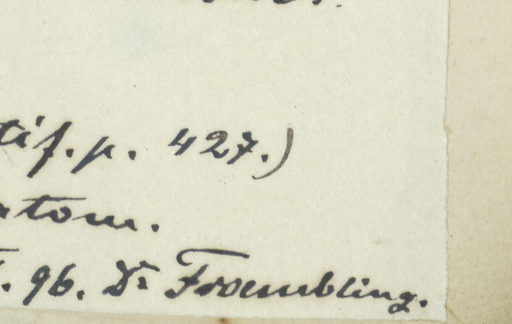 tif. p. 427.)
ntom.
. 96. Dr Froembling.